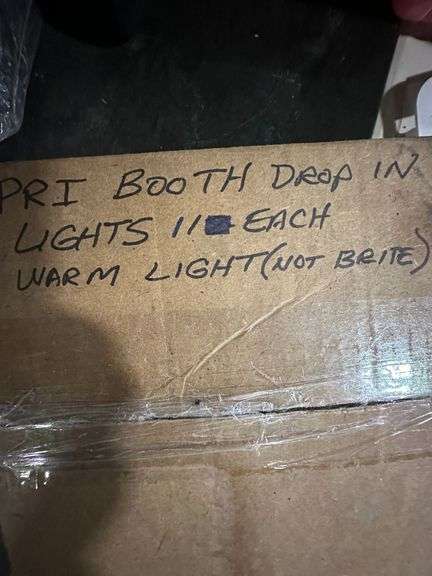 PRI BOOTH DROP IN
LIGHTS 11 EACH
WARM LIGHT (NOT BRITE)